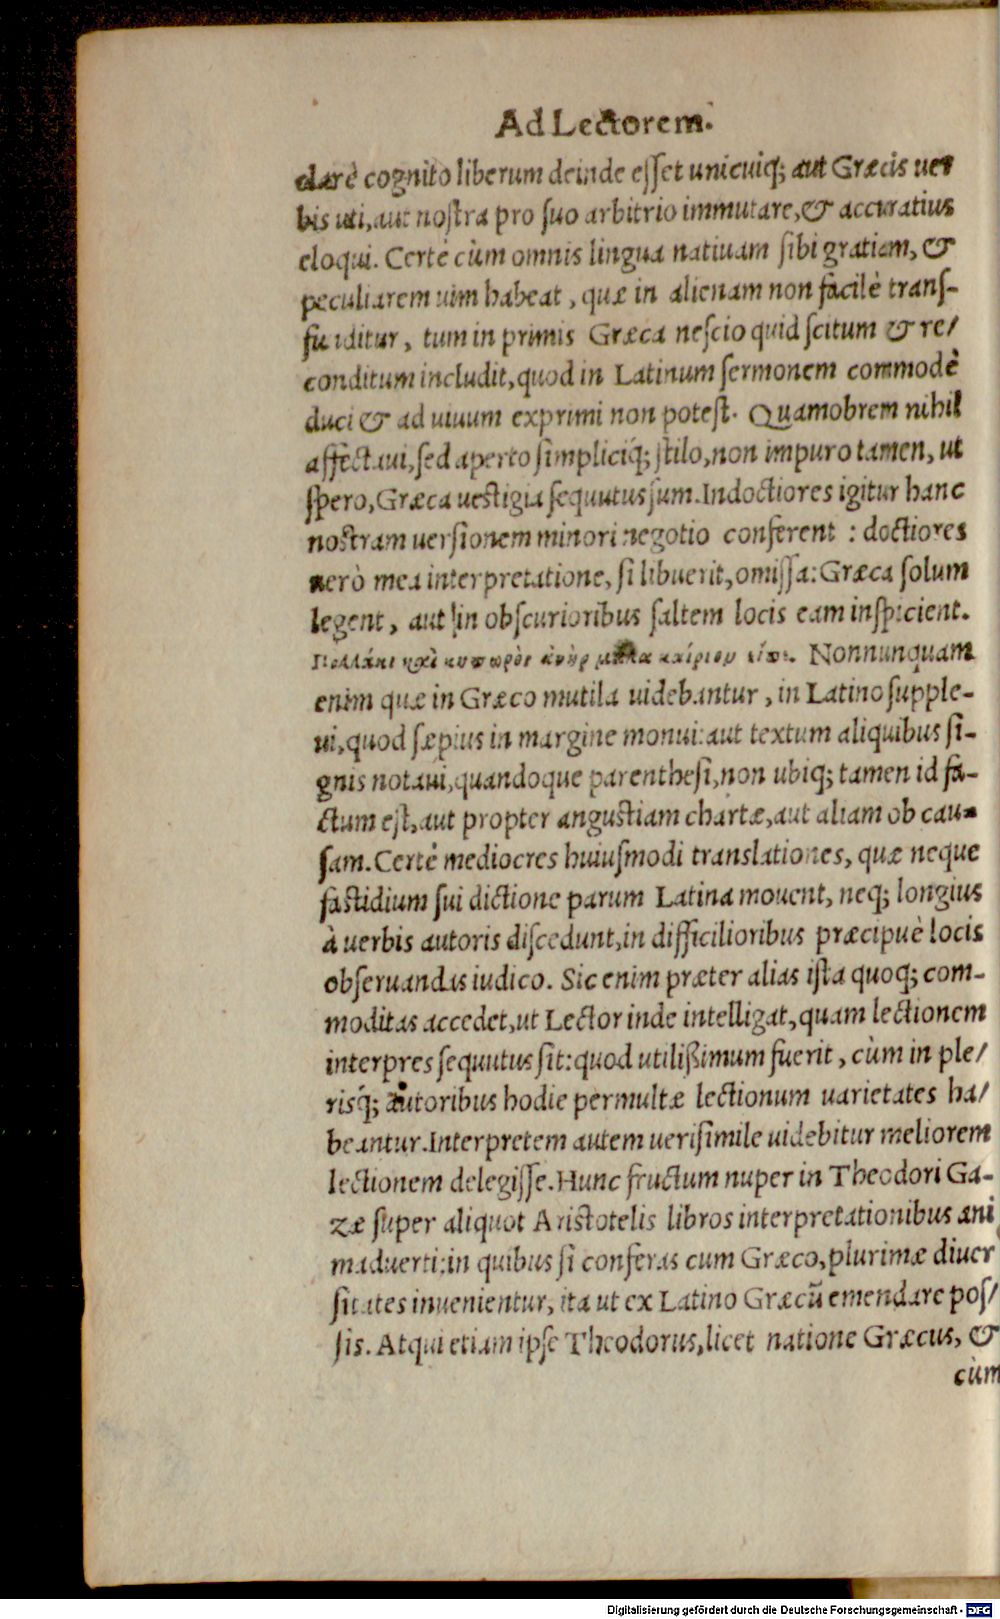 Ad Lectorem.
clarè cognito liberum deinde esſet unicuiq; aut Græcis uer
bis uti, aut noſtra pro ſuo arbitrio immutare, & accuratius
eloqui. Certè cùm omnis lingua natiuam ſibi gratiam, &
peculiarem uim habeat, quæ in alienam non facilè tranſ-
funditur, tum in primis Græca neſcio quid ſcitum & re/
conditum includit, quod in Latinum ſermonem commodè
duci & ad uiuum exprimi non poteſt. Quamobrem nihil
affectaui, ſed aperto ſimpliciq́; ſtilo, non impuro tamen, ut
ſpero, Græca ueſtigia ſequutus ſum. Indoctiores igitur hanc
noſtram uerſionem minori negotio conferent : doctiores
uerò mea interpretatione, ſi libuerit, omiſſa: Græca ſolum
legent, aut in obſcurioribus ſaltem locis eam inſpicient.
Πολλάκι καὶ κηπωρὸς ἀνὴρ μάλα καίριον εἶπε. Nonnunquam
enim quæ in Græco mutila uidebantur, in Latino ſupple-
ui, quod ſæpius in margine monui: aut textum aliquibus ſi-
gnis notaui, quandoque parentheſi, non ubiq; tamen id fa-
ctum eſt, aut propter anguſtiam chartæ, aut aliam ob cau-
ſam. Certè mediocres huiuſmodi translationes, quæ neque
faſtidium ſui dictione parum Latina mouent, neq; longius
à uerbis autoris diſcedunt, in difficilioribus præcipuè locis
obſeruandas iudico. Sic enim præter alias iſta quoq; com-
moditas accedet, ut Lector inde intelligat, quam lectionem
interpres ſequutus ſit: quod utilißimum fuerit, cùm in ple/
risq́; autoribus hodie permultæ lectionum uarietates ha/
beantur. Interpretem autem ueriſimile uidebitur meliorem
lectionem delegiſſe. Hunc fructum nuper in Theodori Ga-
zæ ſuper aliquot Ariſtotelis libros interpretationibus ani
maduerti: in quibus ſi conferas cum Græco, plurimæ diuer
ſitates inuenientur, ita ut ex Latino Græcū emendare poſ/
ſis. Atqui etiam ipſe Theodorus, licet natione Græcus, &
cùm
Digitalisierung gefördert durch die Deutsche Forschungsgemeinschaft - DFG